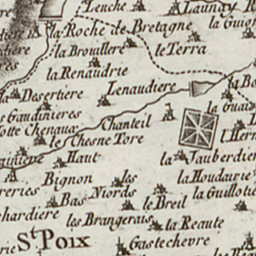 Leuche
Launay
la Roche de Bretagne
la Guion
la Brouallere
le Terra
la Renaudrie
la Desertiere
Lenaudiere
es Gaudinieres
otte Chenaux
Chanteil
la Guais
le Chesne Tore
l'Herm
Haut
la Jauberdier
Bignon
les
la Houdairie
reries
Bas
Niords
la Guillotie
hardiere
le Breil
les Brangerais
la Reaute
St. Poix
Gastechevre